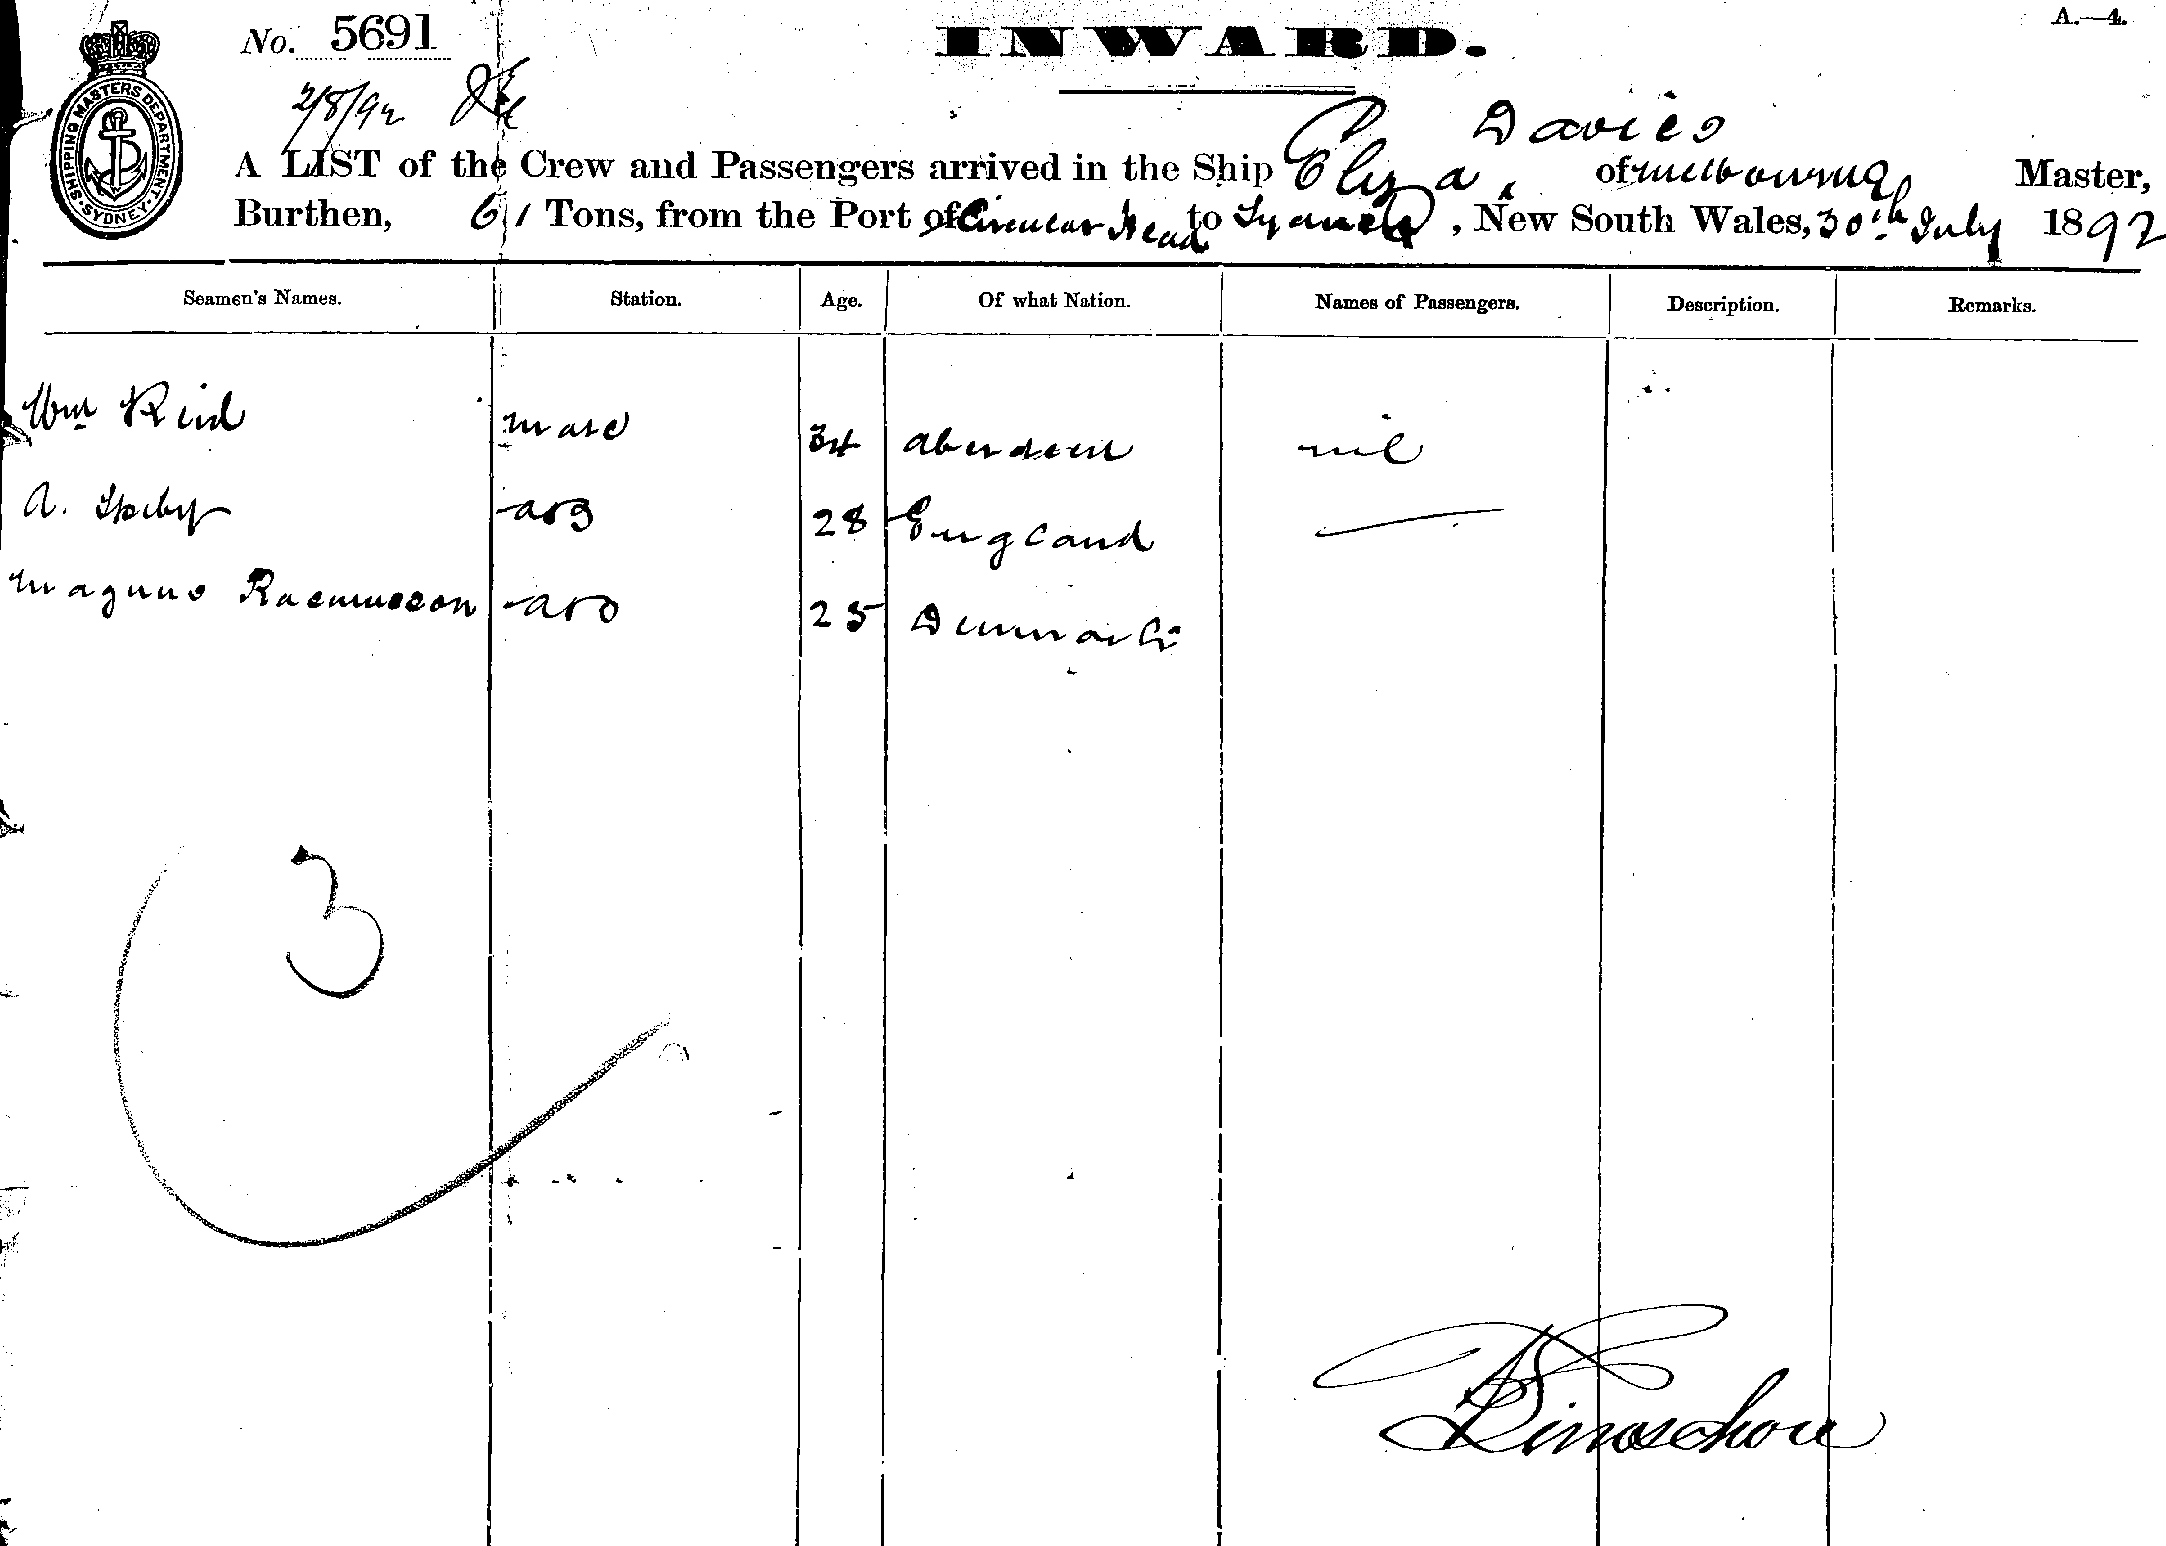 No. 5691
INWARD.
A.—4.
2/8/92
SHIPPING MASTERS DEPARTMENT
SYDNEY
Davies
A LIST of the Crew and Passengers arrived in the Ship Eliza, of Melbourne Master,
Burthen, 61 Tons, from the Port of Circular Head to Sydney, New South Wales, 30th July 1892
Seamen's Names. Station. Age. Of what Nation. Names of Passengers. Description. Remarks.
Wm Reid mate 34 Aberdeen nil
A. 28 England
Magnus Rasmusson 25 Denmark
3